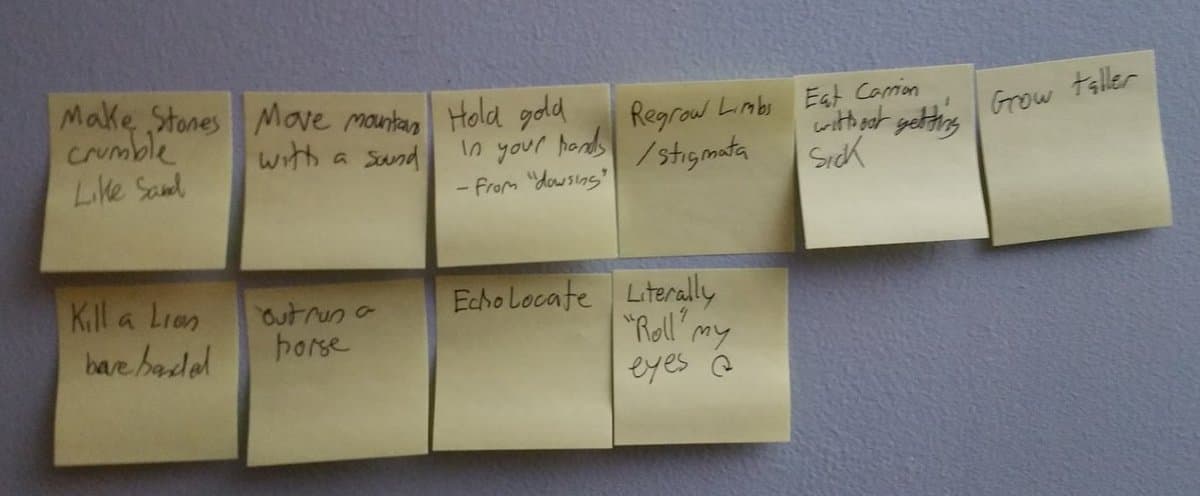 Make Stones
crumble
Like Sand
Move mountains
with a sound
Hold gold
in your hands
- From "dowsing"
Regrow Limbs
/stigmata
Eat Carrion
without getting
Sick
Grow taller
Kill a Lion
barehanded
Outrun a
horse
Echo Locate
Literally
"Roll" my
eyes